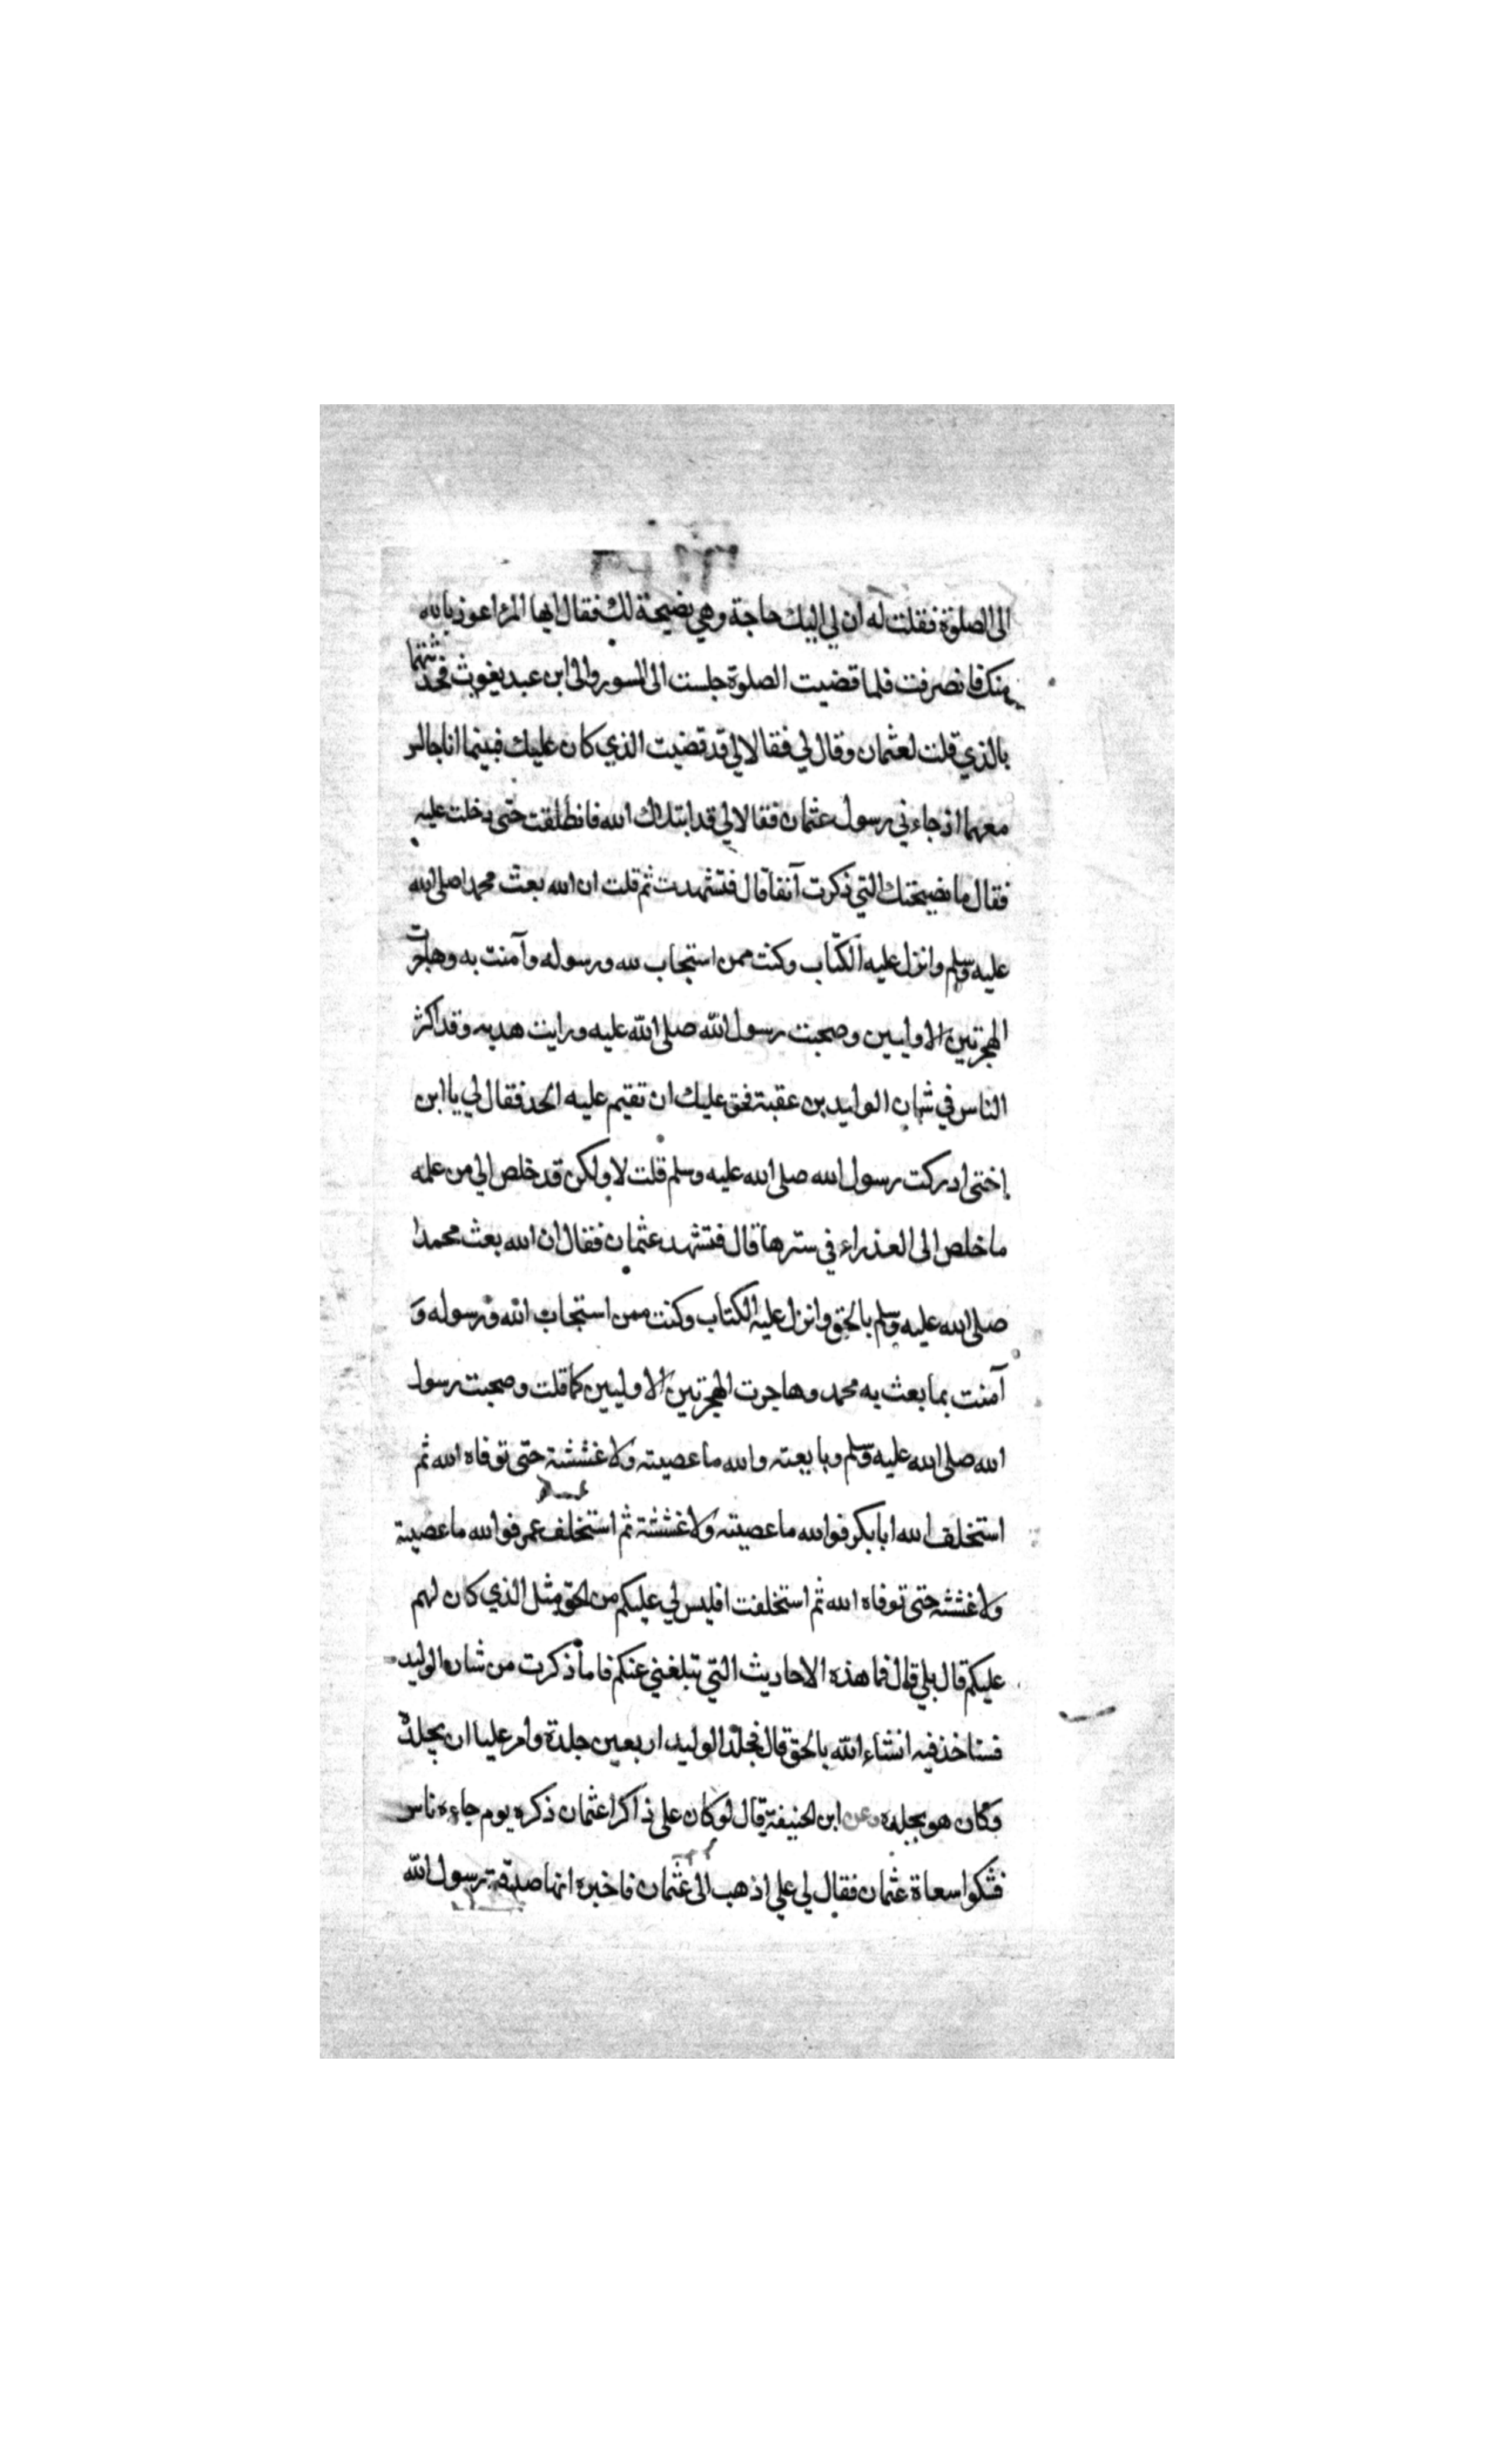 الى الصلوة فقلت له ان لي اليك حاجة وهي نصيحة لك فقال ايها المرٔ اعوذ بالله
منك فانصرفت فلما قضيت الصلوة جلست الى المسور والى ابن عبد يغوث فحدثتهما
بالذي قلت لعثمان وقال لي فقالا لي قد قضيت الذي كان عليك فبينما انا جالس
معهما اذ جاءني رسول عثمان فقالا لي قد ابتلاك الله فانطلقت حتى دخلت عليه
فقال ما نصيحتك التي ذكرت آنفا قال فتشهدت ثم قلت ان الله بعث محمدا صلى الله
عليه وسلم وانزل عليه الكتاب وكنت ممن استجاب لله ورسوله وآمنت به وهاجرت
الهجرتين الاوليين وصحبت رسول الله صلى الله عليه ورايت هديه وقد اكثر
الناس في شان الوليد بن عقبة فحق عليك ان تقيم عليه الحد فقال لي يا ابن
اختي ادركت رسول الله صلى الله عليه وسلم قلت لا ولكن قد خلص الي من علمه
ما خلص الى العذراء في سترها قال فتشهد عثمان فقال ان الله بعث محمدا
صلى الله عليه وسلم بالحق وانزل عليه الكتاب وكنت ممن استجاب الله ورسوله و
آمنت بما بعث به محمد وهاجرت الهجرتين الاوليين كما قلت وصحبت رسول
الله صلى الله عليه وسلم وبايعته والله ما عصيته ولا غششته حتى توفاه الله ثم
استخلف الله ابا بكر فوالله ما عصيته ولا غششته ثم استخلف عمر فوالله ما عصيته
ولا غششته حتى توفاه الله ثم استخلفت افليس لي عليكم من الحق مثل الذي كان لهم
عليكم قال بلى قال فما هذه الاحاديث التي تبلغني عنكم فاما ذكرت من شان الوليد
فسناخذ فيه انشاء الله بالحق قال فجلد الوليد اربعين جلدة وامر عليا ان يجلده
وكان هو يجلده وعن ابن الحنيفة قال لو كان علي ذاكرا عثمان ذكره يوم جاءه ناس
فشكوا سعاة عثمان فقال لي علي اذهب الى عثمان فاخبره انها صدقة رسول الله